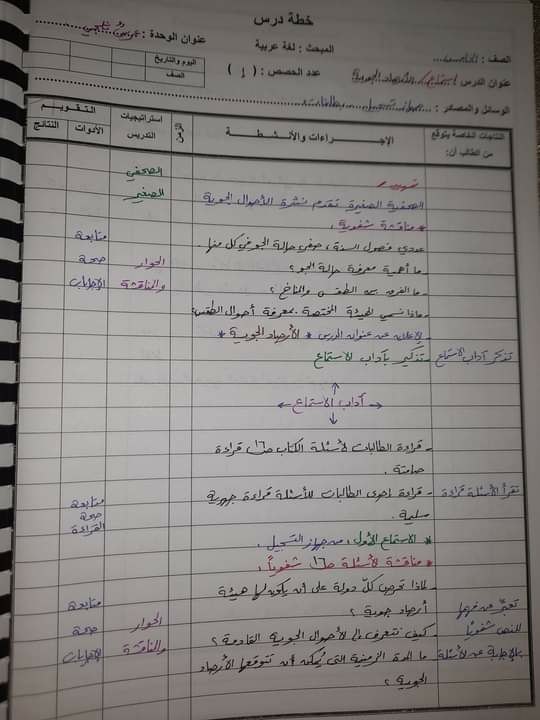 خطة درس
الصف : الخامس المبحث : لغة عربية عنوان الوحدة :
عنوان الدرس : استماع الأرصاد الجوية عدد الحصص : ( 1 ) اليوم والتاريخ
الصف
الوسائل والمصادر : جهاز تسجيل ، بطاقات
النتاجات الخاصة يتوقع من الطالب أن: الإجراءات والأنشطة استراتيجيات التدريس التقويم
الأدوات النتائج
تمهيد :
الصحفي الصغير
الصحفية الصغيرة تقدم نشرة الأحوال الجوية
* مناقشة شفوية :
عددي فصول السنة ، صفي حالة الجو في كل منها .
- ما أهمية معرفة حالة الجو ؟
- ما الفرق بين الطقس والمناخ ؟
- ماذا نسمي الهيئة المختصة بمعرفة أحوال الطقس ؟
الحوار والمناقشة
متابعة صحة الإجابات
- الإعلان عن عنوان الدرس * الأرصاد الجوية *
تتذكر آداب الاستماع - تذكير بآداب الاستماع
آداب الاستماع
- قراءة الطالبات لأسئلة الكتاب ص١٦ قراءة
صامتة .
تقرأ الأسئلة قراءة - قراءة إحدى الطالبات للأسئلة قراءة جهرية
سليمة .
متابعة صحة القراءة
* الاستماع الأول : من جهاز التسجيل .
* مناقشة الأسئلة ص١٦ شفويًا :
- لماذا تحرص كل دولة على أن يكون لها هيئة
أرصاد جوية ؟
تعبّر عن فهمها للنص شفويًا بالإجابة عن الأسئلة
- كيف نتعرف إلى الأحوال الجوية القادمة ؟
- ما المدة الزمنية التي يُمكن أن تتوقعها الأرصاد
الجوية ؟
الحوار والمناقشة
متابعة صحة الإجابات